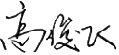 高俊飞